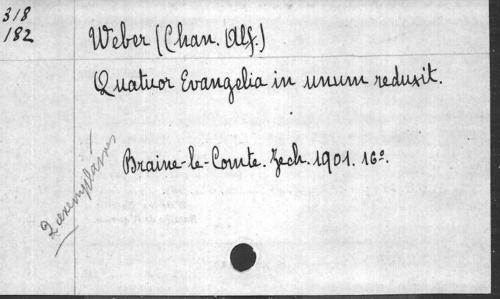 318
182
Weber (Chan. Alf.)
Quatuor Evangelia in unum reduxit.
Braine-le-Comte. Zech. 1901. 16°.
2 exemplaires